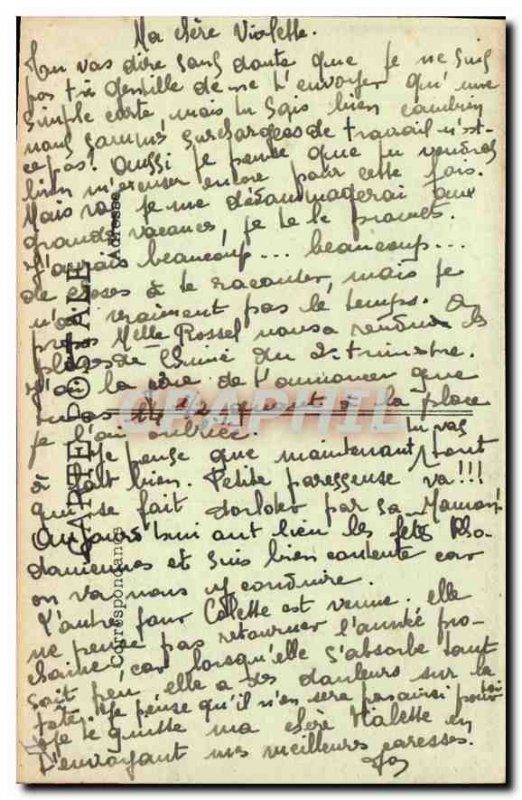 Ma chère Violette.
Tu vas dire sans doute que je ne suis
pas très gentille de ne t'envoyer qu'une
simple carte, mais tu sais bien combien
nous sommes surchargées de travail n'est-
ce pas! Aussi je pense que tu voudras
bien m'excuser encore pour cette fois.
Mais va je me dédommagerai aux
grandes vacances, je te le promets.
J'aurais beaucoup... beaucoup...
de choses à te raconter, mais je
n'ai vraiment pas le temps. A
propos Melle Rossel nous a rendu les
places de Chimie du 2e trimestre.
J'ai la joie de t'annoncer que
tu as à la place
je l'ai oubliée. tu vas
Je pense que maintenant tout
à fait bien. Petite paresseuse va!!!
qui se fait dorloter par sa Maman!
Aujourd'hui ont lieu les fêtes Rho-
daniennes et suis bien contente car
on va nous y conduire.
L'autre jour Colette est venue. elle
ne pense pas retourner l'année pro-
chaine car lorsqu'elle s'absorbe tant
soit peu elle a des douleurs sur la
tête. Je pense qu'il n'en sera pas ainsi pour toi
Je te quitte ma chère Violette en
t'envoyant mes meilleurs caresses.
CARTE POSTALE
Correspondance
Adresse
CPAPHIL